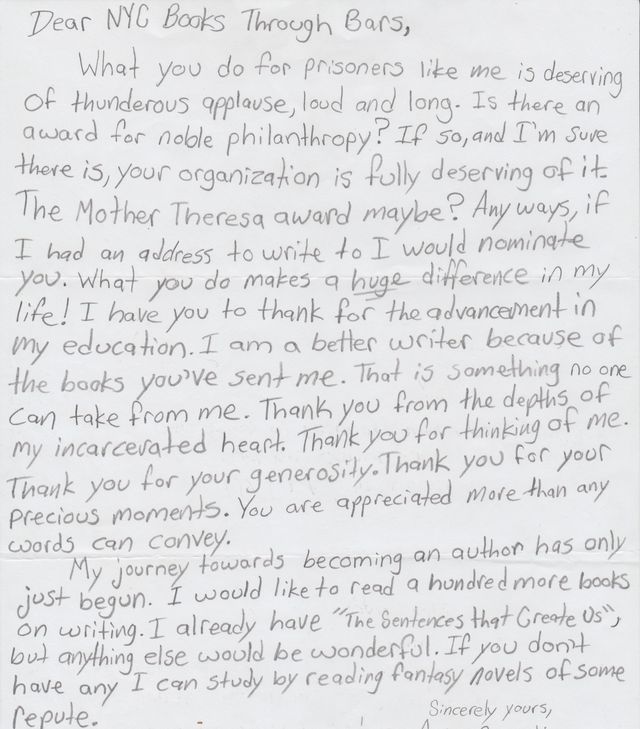 Dear NYC Books Through Bars,
What you do for prisoners like me is deserving
of thunderous applause, loud and long. Is there an
award for noble philanthropy? If so, and I'm sure
there is, your organization is fully deserving of it.
The Mother Theresa award maybe? Any ways, if
I had an address to write to I would nominate
you. What you do makes a huge difference in my
life! I have you to thank for the advancement in
my education. I am a better writer because of
the books you've sent me. That is something no one
can take from me. Thank you from the depths of
my incarcerated heart. Thank you for thinking of me.
Thank you for your generosity. Thank you for your
precious moments. You are appreciated more than any
words can convey.
My journey towards becoming an author has only
just begun. I would like to read a hundred more books
on writing. I already have "The Sentences that Create Us",
but anything else would be wonderful. If you don't
have any I can study by reading fantasy novels of some
repute.
Sincerely yours,